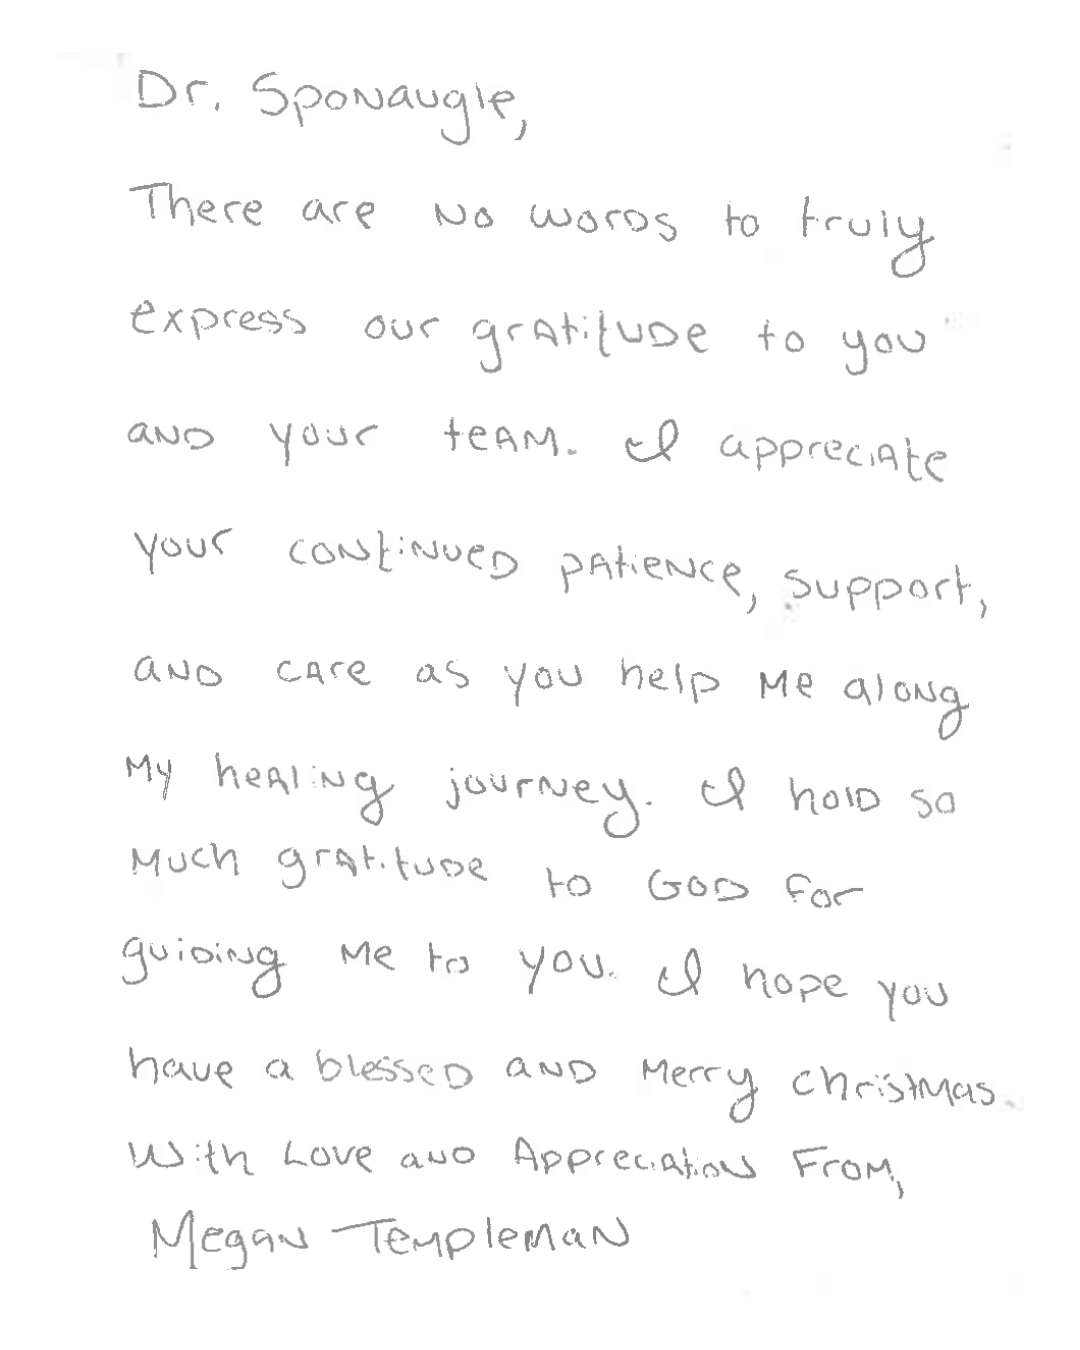 Dr. Sponaugle,
There are no words to truly
express our gratitude to you
and your team. I appreciate
your continued patience, support,
and care as you help me along
my healing journey. I hold so
much gratitude to God for
guiding me to you. I hope you
have a blessed and merry christmas.
With Love and Appreciation From,
Megan Templeman